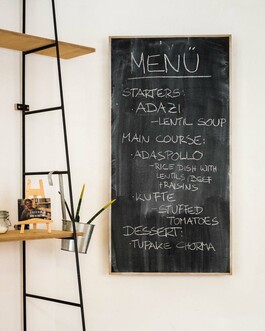 MENÜ
STARTERS:
· ADAZI
- LENTIL SOUP
MAIN COURSE:
· ADASPOLLO
- RICE DISH WITH
LENTILS, BEEF
+ RAISINS
· KUFTE
- STUFFED
TOMATOES
DESSERT:
· TUPAKE CHORMA